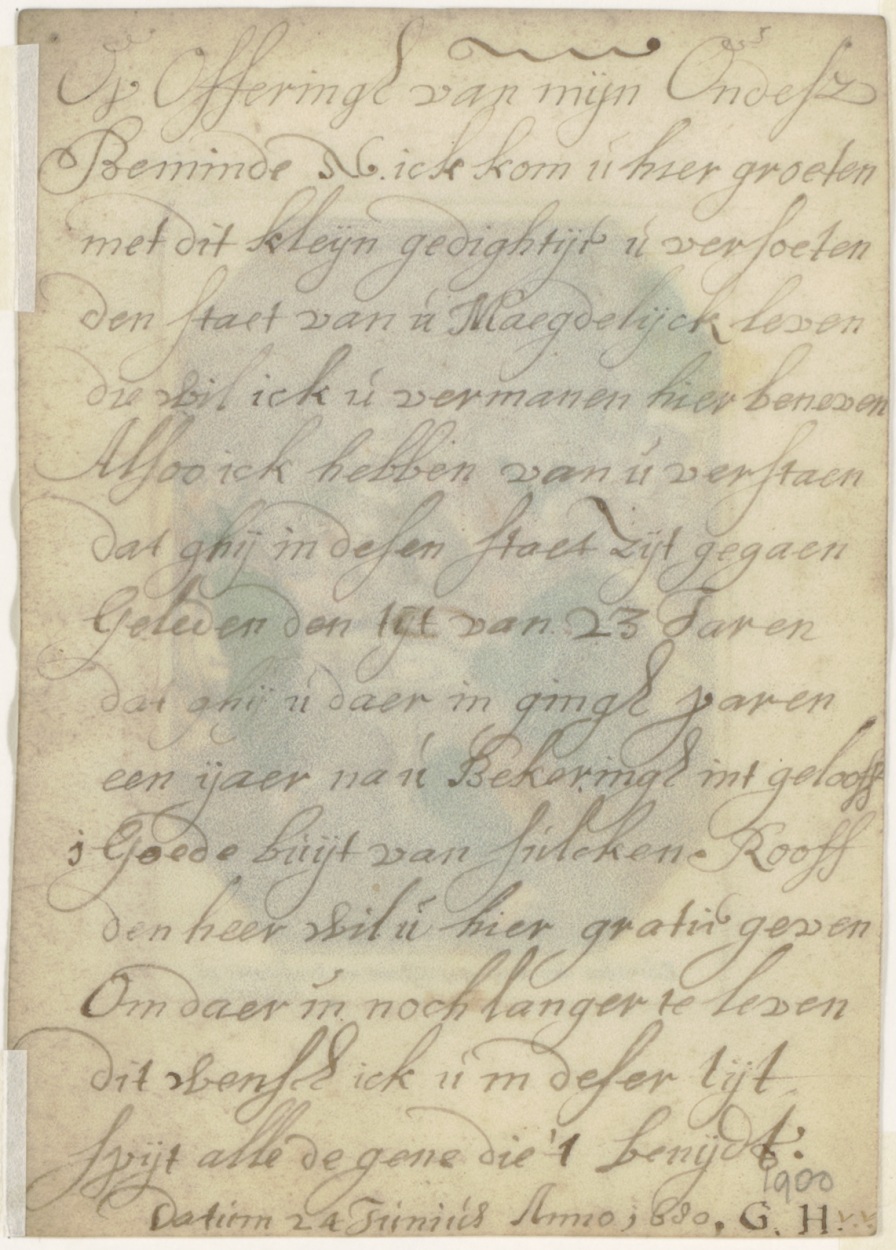 Op Offeringe van mijn Ondesz
Beminde N. ick kom ú hier groeten
met dit kleijn gedightijt ú versoeten
den staet van ú Maegdelijck leven
die wil ick ú vermanen hier beneven
Alsoo ick hebben van ú verstaen
dat ghij in desen staet zijt gegaen
Geleden den tijt van 23 Jaren
dat ghij ú daer in gingt paren
een ijaer na ú Bekeringe int gelooff
Goede búijt van súlcken Rooff
den heer wil ú hier gratis geven
Om daer in noch langer te leven
dit wensch ick ú in deser tijt
spijt alle de gene die't benijdt.
1900
Datúm 24 Júniús Anno 1680. G. H.